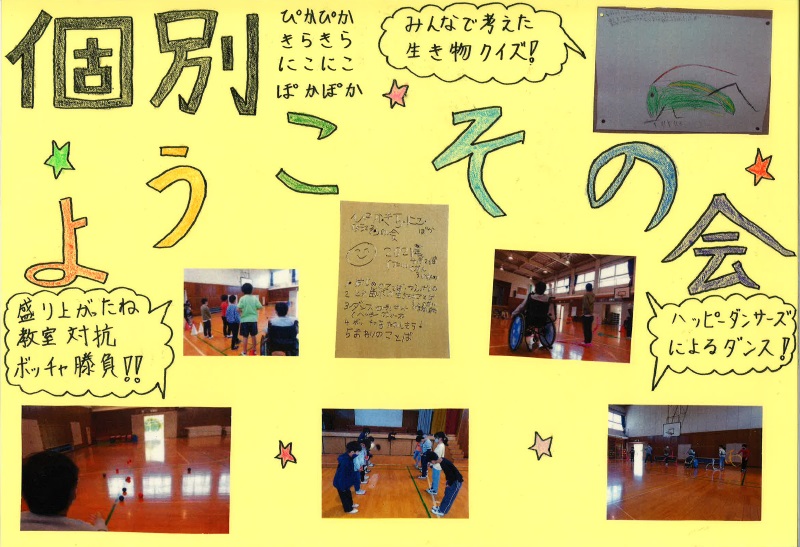 個別
ぴかぴか
きらきら
にこにこ
ぽかぽか
みんなで考えた
生き物クイズ!
ようこその会
盛り上がったね
教室対抗
ボッチャ勝負!!
ハッピーダンサーズ
によるダンス!